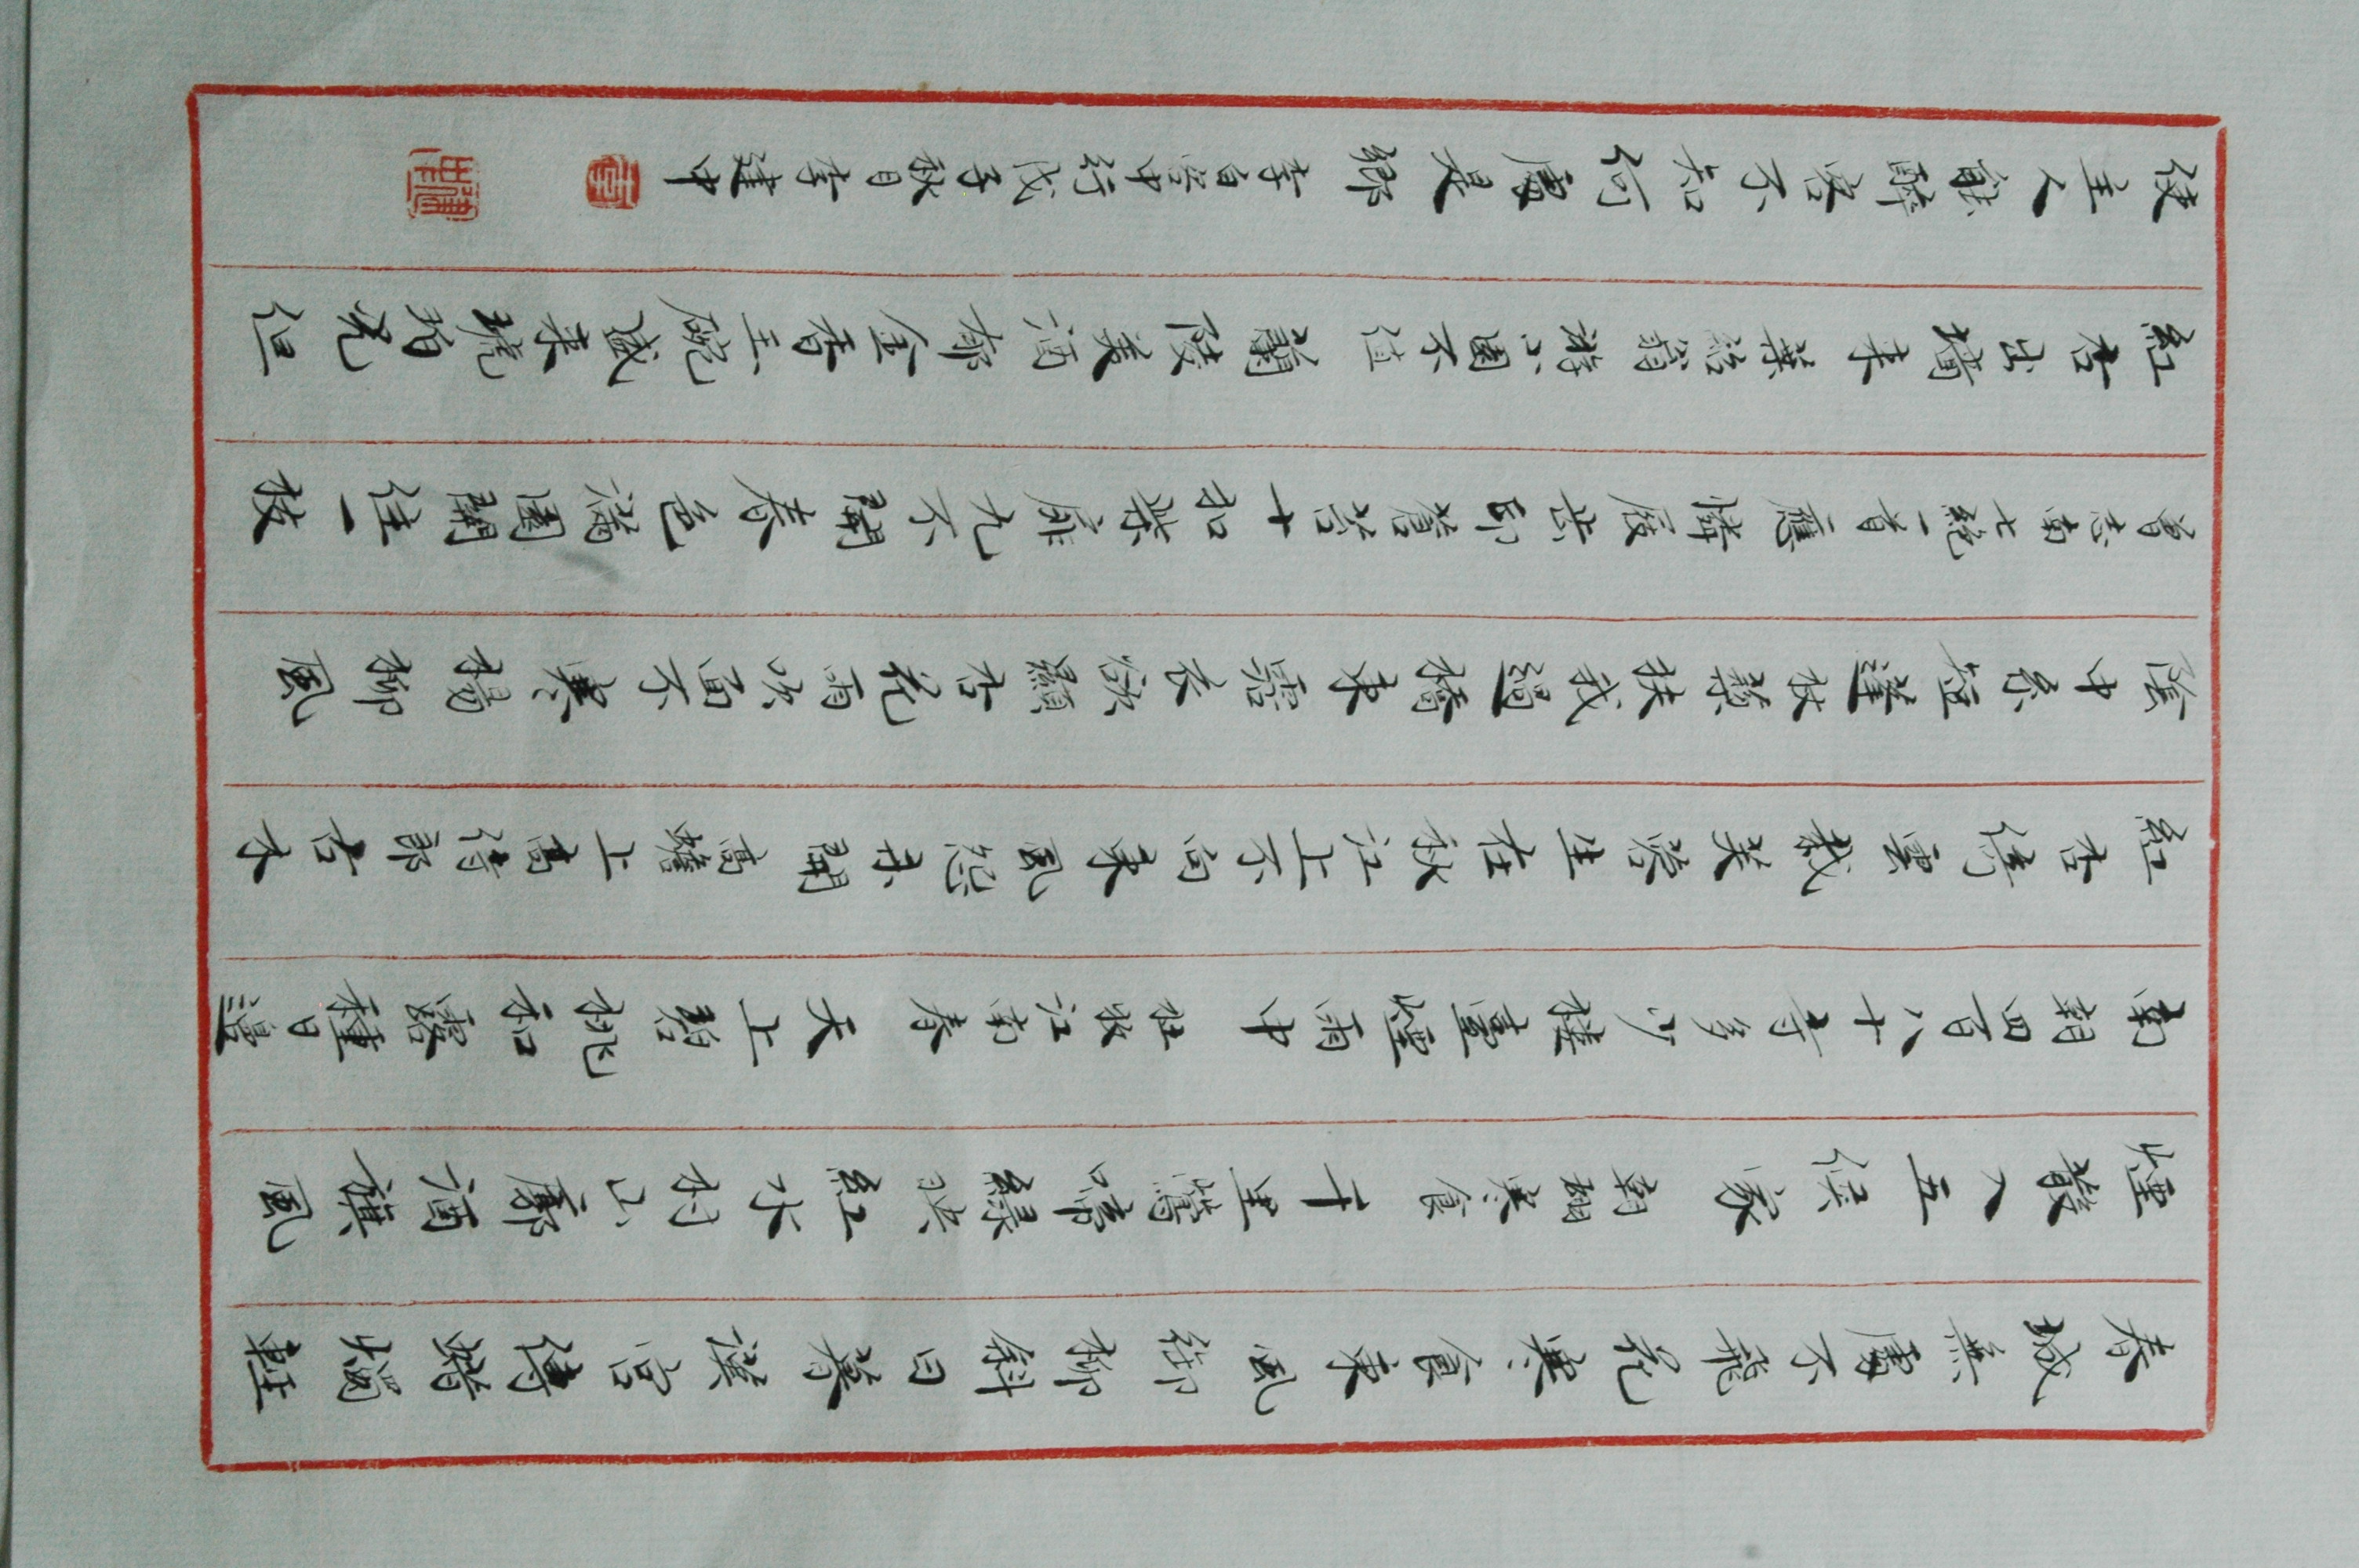 春城無處不飛花寒食東風御柳斜日暮漢宮傳蠟燭輕
煙散入五侯家 韓翃寒食 千里鶯啼綠映紅水村山廓酒旗風
南朝四百八十寺多少樓臺煙雨中 杜牧江南春 天上碧桃和露種日邊
紅杏倚雲栽芙蓉生在秋江上不向東風怨未開 高蟾上高侍郎 古木
陰中系短蓬杖藜扶我過橋東霑衣欲顯杏花雨吹面不寒楊柳風
曾志南七絕一首 應憐屐齿印蒼苔十扣柴扉九不開春色滿園關住一枝
紅杏出墙来 葉紹翁 游小園不值 蘭陵美酒郁金香玉碗盛来琥珀光但
使主人能醉客不知何處是鄉 李白客中行 戊子秋月李建中
李
建中